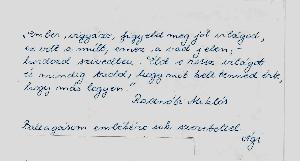 „Ember, vigyázz, figyeld meg jól világod,
ez volt a múlt, emez a vad jelen, –
hordozd szívedben. Éld e rossz világot
és mindig tudd, hogy mit kell tenned érte,
hogy más legyen."
Radnóti Miklós
Ballagásom emlékére sok szeretettel
Ági